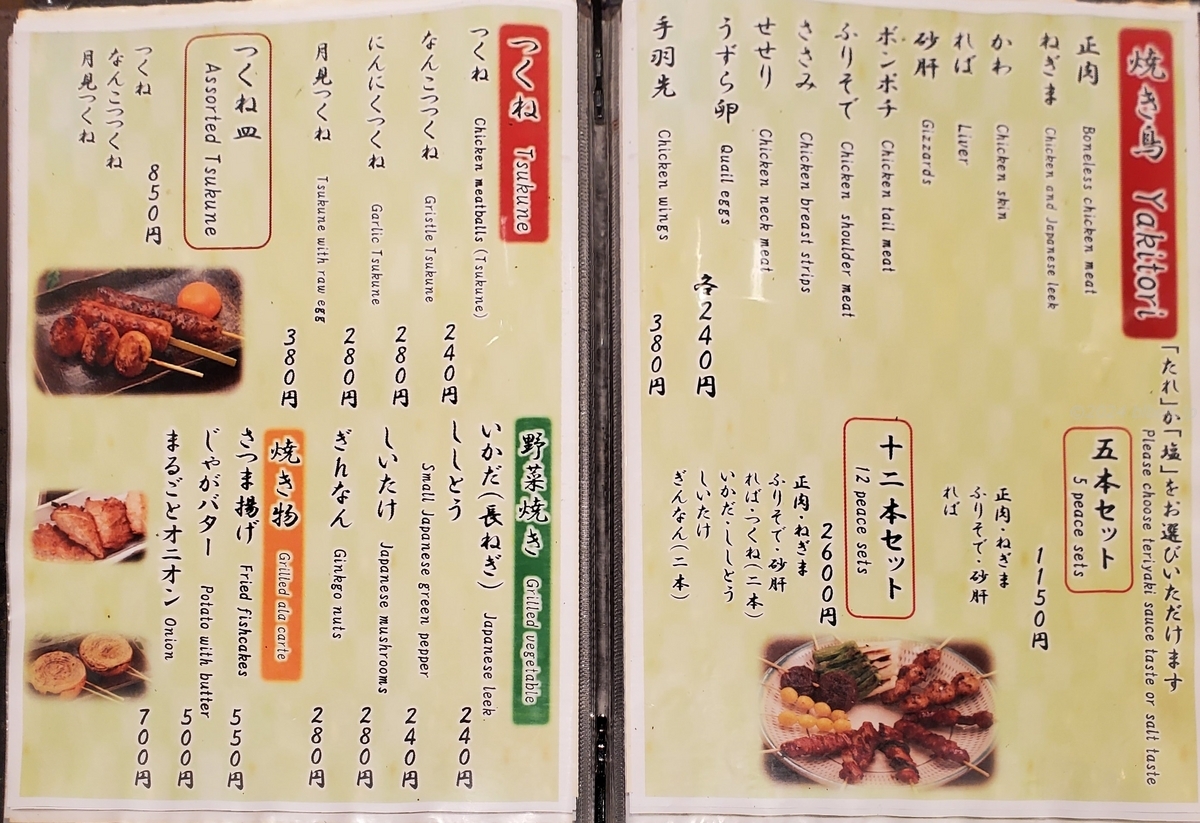 焼き鳥 Yakitori
「たれ」か「塩」をお選びいただけます
Please choose teriyaki sauce taste or salt taste
正肉 Boneless chicken meat
ねぎま Chicken and Japanese leek
かわ Chicken skin
ればー Liver
砂肝 Gizzards
ボンボチ Chicken tail meat
ふりそで Chicken shoulder meat
ささみ Chicken breast strips
せせり Chicken neck meat
うずら卵 Quail eggs
各240円
手羽先 Chicken wings 380円
五本セット
5 peace sets
1150円
正肉・ねぎま
ふりそで・砂肝
れば
十二本セット
12 peace sets
2600円
正肉・ねぎま
ふりそで・砂肝
れば・つくね(二本)
いかだ・ししとう
しいたけ
ぎんなん(二本)
つくね Tsukune
つくね Chicken meatballs (Tsukune) 240円
なんこつつくね Gristle Tsukune 280円
にんにくつくね Garlic Tsukune 280円
月見つくね Tsukune with raw egg 380円
つくね皿
Assorted Tsukune
850円
つくね
なんこつつくね
月見つくね
野菜焼き Grilled vegetable
いかだ(長ねぎ) Japanese leek 240円
ししとう Small Japanese green pepper 240円
しいたけ Japanese mushrooms 280円
ぎんなん Ginkgo nuts 280円
焼き物 Grilled ala carte
さつま揚げ Fried fishcakes 550円
じゃがバター Potato with butter 500円
まるごとオニオン Onion 700円